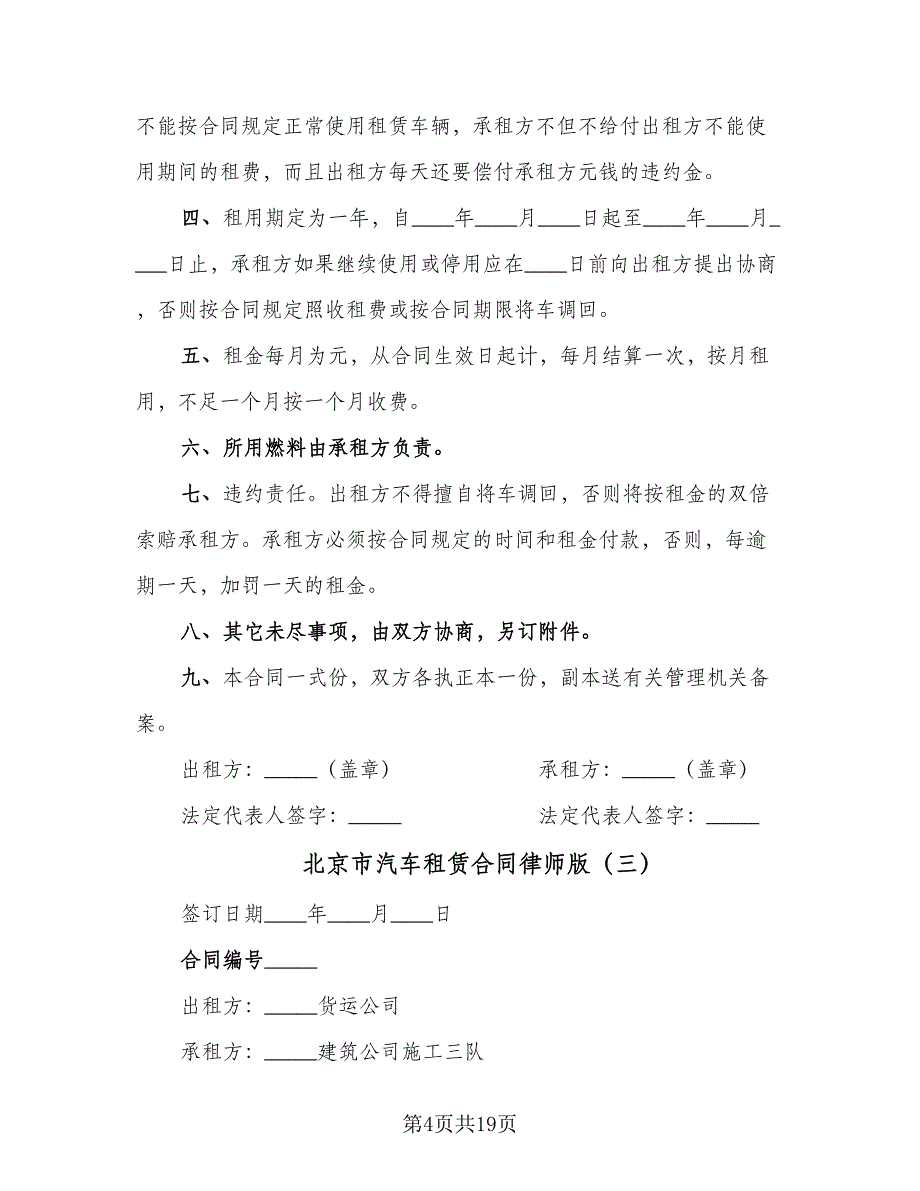 不能按合同规定正常使用租赁车辆，承租方不但不给付出租方不能使
用期间的租费，而且出租方每天还要偿付承租方元钱的违约金。
四、租用期定为一年，自____年____月____日起至____年____月_
___日止，承租方如果继续使用或停用应在____日前向出租方提出协商
，否则按合同规定照收租费或按合同期限将车调回。
五、租金每月为元，从合同生效日起计，每月结算一次，按月租
用，不足一个月按一个月收费。
六、所用燃料由承租方负责。
七、违约责任。出租方不得擅自将车调回，否则将按租金的双倍
索赔承租方。承租方必须按合同规定的时间和租金付款，否则，每逾
期一天，加罚一天的租金。
八、其它未尽事项，由双方协商，另订附件。
九、本合同一式份，双方各执正本一份，副本送有关管理机关备
案。
出租方：_____（盖章） 承租方：_____（盖章）
法定代表人签字：_____ 法定代表人签字：_____
北京市汽车租赁合同律师版（三）
签订日期____年____月____日
合同编号_____
出租方：_____货运公司
承租方：_____建筑公司施工三队
第4页共19页